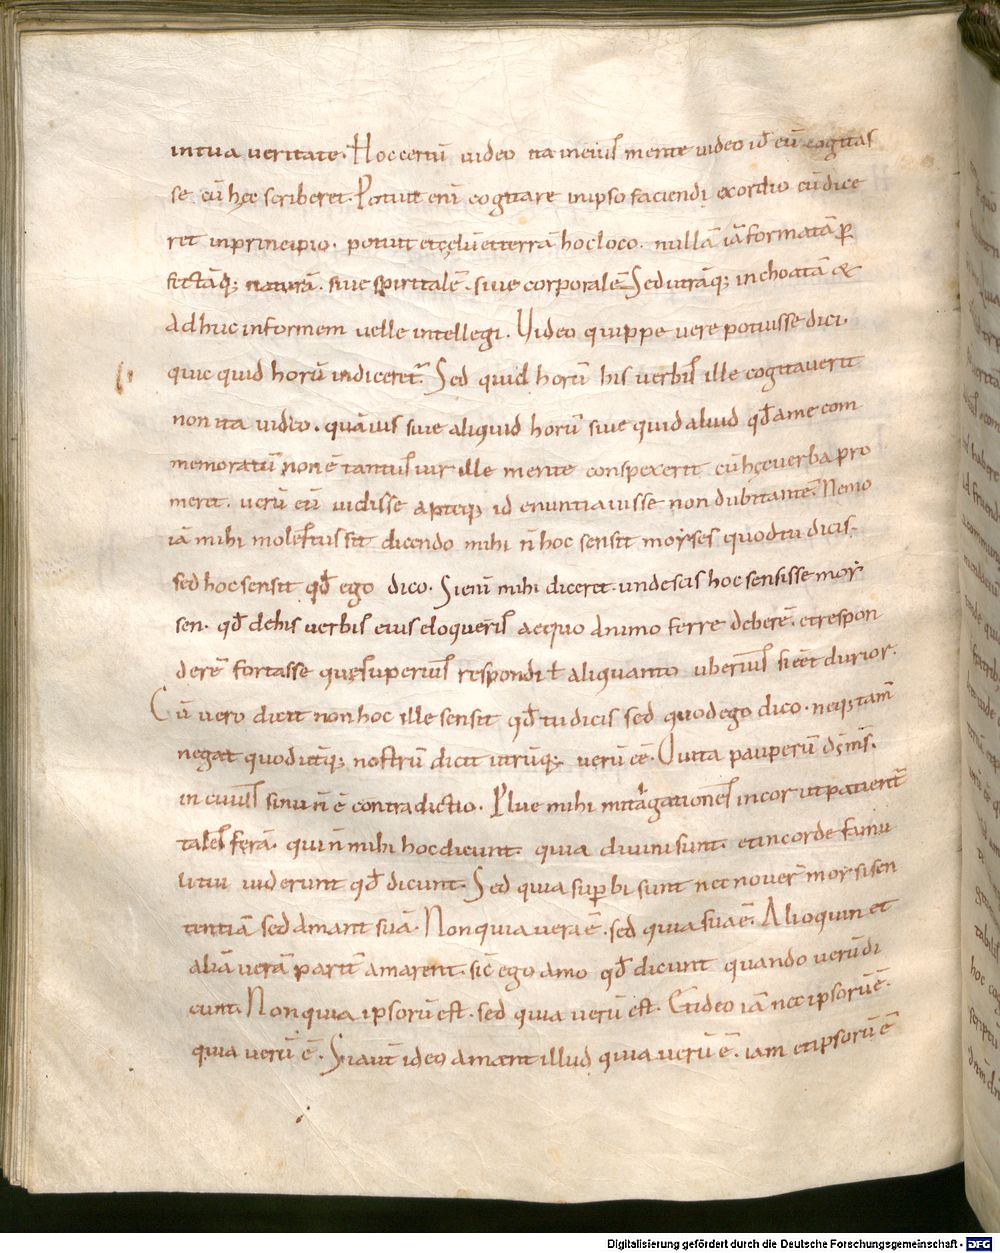 intua ueritate. Hoc certū uideo ita in eiuſ mente uideo id̄ eū cogitaſ
se cū hęc scriberet. Potuit enī cogitare inipso faciendi exordio cū dice
ret inprincipio. potuit et cęlū et terrā hoc loco. nullā iā formatā ꝑ
fectāq; naturā. siue spiritalē. siue corporalē. Sed utrāq; inchoatā &
adhuc informem uelle intellegi. Uideo quippe uere potuisse dici.
quic quid horū indiceret᷑. Sed quid horū his uerbiſ ille cogitauerit
non ita uideo. quāuiſ siue aliquid horū siue quid aliud qd̄ ame com
memoratū non ē tantuſ uir ille mente conspexerit cū hęc uerba pro
meret. uerū eū uidisse apteq; id enuntiauisse non dubitauerī. Nemo
iā mihi moleſtuſ sit dicendo mihi n̄ hoc sensit moyses quod tu dicis.
sed hoc sensit qd̄ ego dico. Si enī mihi diceret. unde scis hoc sensisse moy
sen. qd̄ dehis uerbiſ eius eloqueriſ aequo animo ferre deberē. et respon
derē fortasse quę ſuperiuſ respondi ł aliquanto uberiuſ si eēt durior.
Cū uero dicit non hoc ille sensit qd̄ tu dicis sed quod ego dico. neq; tam̄
negat quod utq; nostrū dicit utrūq; uerū ēē. O uita pauperū dꝰ mſ.
in cuiuſ sinu n̄ ē contradictio. Plue mihi mitigationeſ in cor ut patient᷑
taleſ ferā. qui n̄ mihi hoc dicunt. quia diuini sunt. et in corde famu
li tui uiderunt qd̄ dicunt. Sed quia suꝑbi sunt nec nouer̄ moysi sen
tentiā sed amant suā. Non quia uera ē. sed quia sua ē. Alioquin et
aliā uerā parit᷑ amarent. sic̄ ego amo qd̄ dicunt quando uerū di
cunt. Non quia ipsorū eſt. sed quia uerū eſt. Et ideo iā nec ipsorū ē.
quia uerū ē. Si aut̄ ideo amant illud quia uerū ē. iam et ipsorū ē
Digitalisierung gefördert durch die Deutsche Forschungsgemeinschaft - DFG